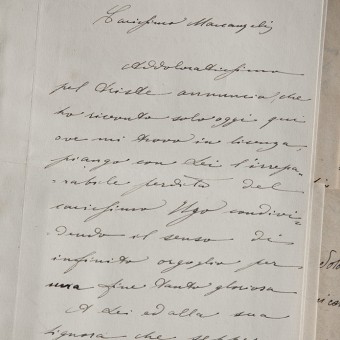 Carissimo Marcangeli
Addoloratissimo
pel triste annuncio, che
ho ricevuto solo oggi qui
ove mi trovo in licenza,
piango con Lei l'irrepa-
rabile perdita del
carissimo Ugo condivi-
dendo il senso di
infinito orgoglio per
una fine tanto gloriosa
A Lei ed alla sua
signora che seppe